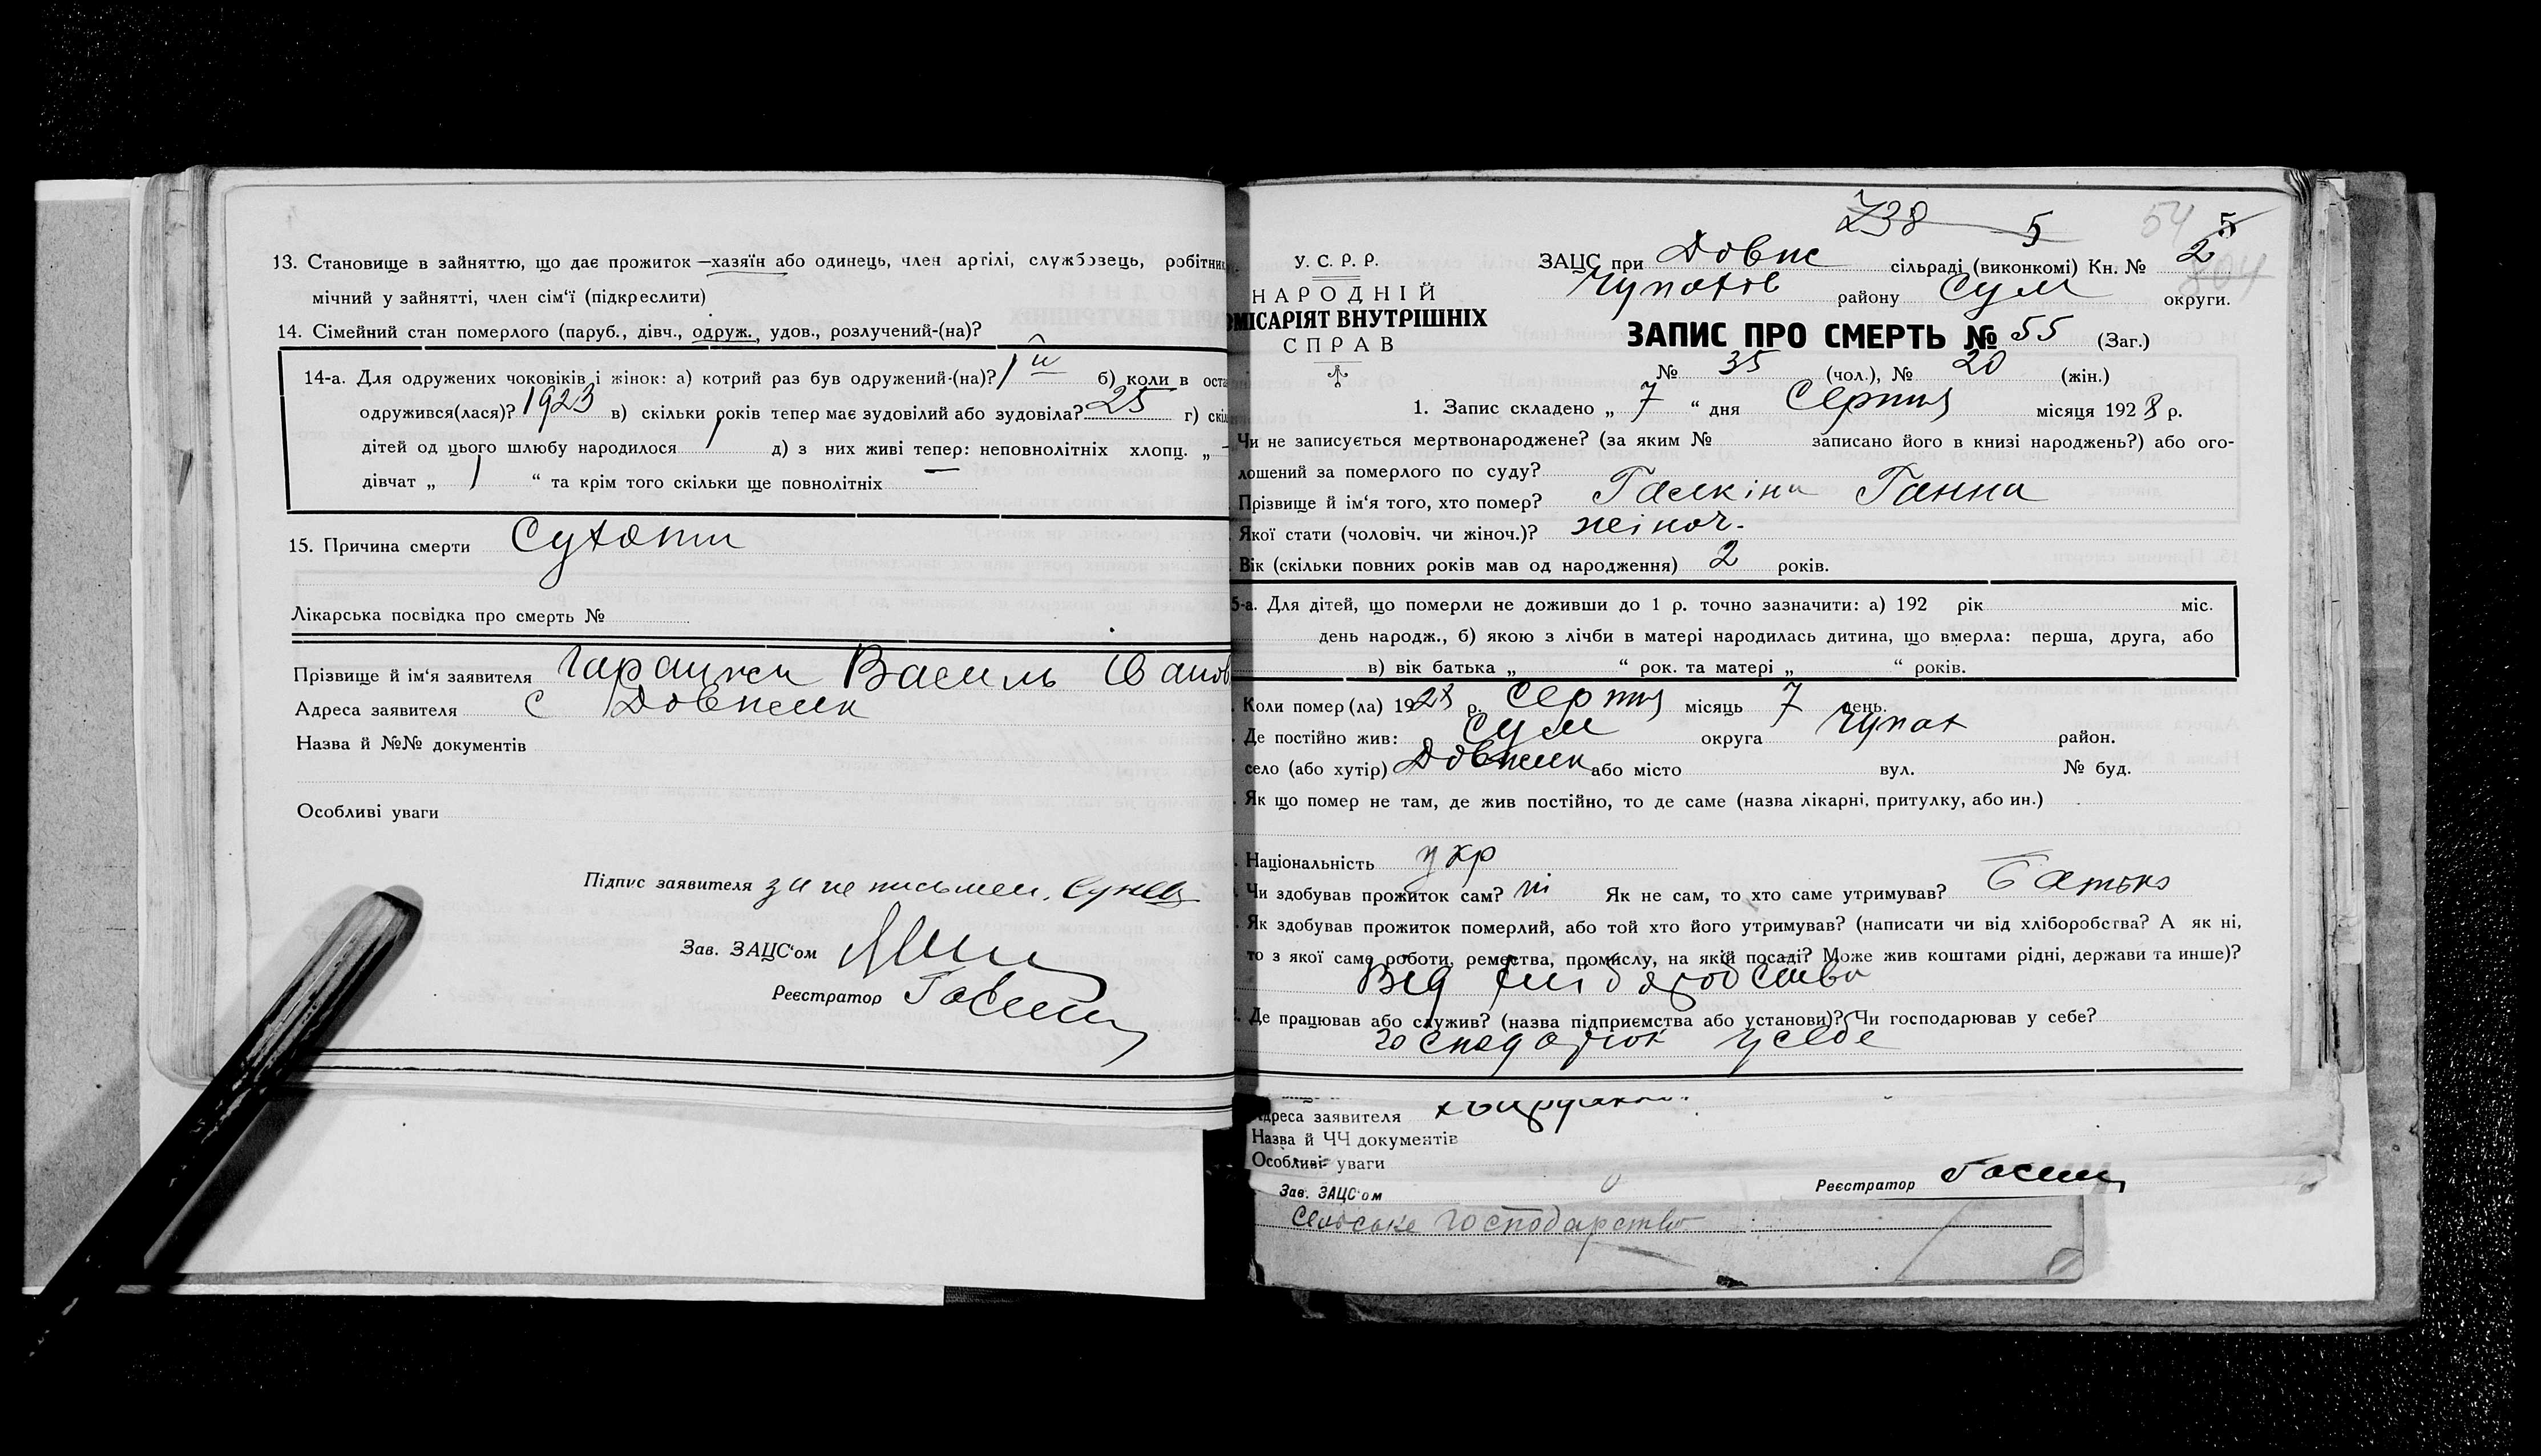 13. Становище в зайняттю, що дає прожиток —хазяїн або одинець, член артілі, службовець, робітник
мічний у зайнятті, член сім'ї (підкреслити)
14. Сімейний стан померлого (паруб., дівч., одруж., удов., розлучений-(на)?
14-а. Для одружених чоковіків і жінок: а) котрий раз був одружений-(на)? 1й б) коли в оста
одружився(лася)? 1923 в) скільки років тепер має зудовілий або зудовіла? 25 г) скіл
дітей од цього шлюбу народилося 1 д) з них живі тепер: неповнолітніх хлопц. „ —
дівчат „ 1 “ та крім того скільки ще повнолітніх —
15. Причина смерти Сухоти
Лікарська посвідка про смерть №
Прізвище й ім'я заявителя Василь Іванов
Адреса заявителя с Довжик
Назва й №№ документів
Особливі уваги
Підпис заявителя за не письмен.
Зав. ЗАЦС'ом
Реєстратор
738 5 54 5
У. С. Р. Р.
НАРОДНІЙ
ОМІСАРІЯТ ВНУТРІШНІХ
СПРАВ
ЗАЦС при Довж сільраді (виконкомі) Кн. № 2
304
Чупахів району Сум округи.
ЗАПИС ПРО СМЕРТЬ № 55 (Заг.)
№ 35 (чол.), № 20 (жін.)
1. Запис складено „ 7 “ дня Серпня місяця 1928 р.
Чи не записується мертвонароджене? (за яким № записано його в книзі народжень?) або ого-
лошений за померлого по суду?
Прізвище й ім'я того, хто помер? Галкіна Ганна
Якої стати (чоловіч. чи жіноч.)? жіноч.
Вік (скільки повних років мав од народження) 2 років.
5-а. Для дітей, що померли не доживши до 1 р. точно зазначити: а) 192 рік міс.
день народж., б) якою з лічби в матері народилась дитина, що вмерла: перша, друга, або
в) вік батька „ “ рок. та матері „ “ років.
Коли помер(ла) 1928 р. Серпня місяць 7 день.
Де постійно жив: Сум округа Чупах район.
село (або хутір) Довжик або місто вул. № буд.
Як що помер не там, де жив постійно, то де саме (назва лікарні, притулку, або ин.)
Національність укр
Чи здобував прожиток сам? ні Як не сам, то хто саме утримував? Батько
Як здобував прожиток померлий, або той хто його утримував? (написати чи від хліборобства? А як ні,
то з якої саме роботи, ремества, промислу, на якій посаді? Може жив коштами рідні, держави та инше)?
Від хліборобства
Де працював або служив? (назва підприємства або установи)? Чи господарював у себе?
господарює у себе
Адреса заявителя
Назва й ЧЧ документів
Особливі уваги
Зав. ЗАЦС'ом Реєстратор
сельське господарство